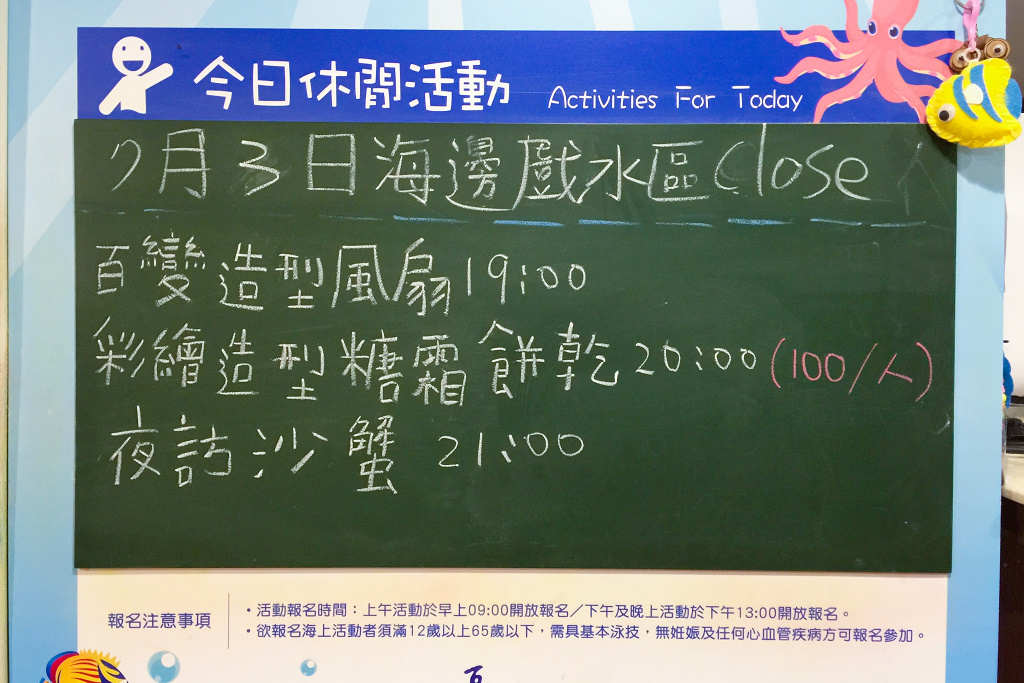 今日休閒活動 Activities For Today
7月3日海邊戲水區Close
百變造型風扇19:00
彩繪造型糖霜餅乾20:00(100/人)
夜訪沙蟹 21:00
報名注意事項
・活動報名時間：上午活動於早上09:00開放報名／下午及晚上活動於下午13:00開放報名。
・欲報名海上活動者須滿12歲以上65歲以下，需具基本泳技，無妊娠及任何心血管疾病方可報名參加。